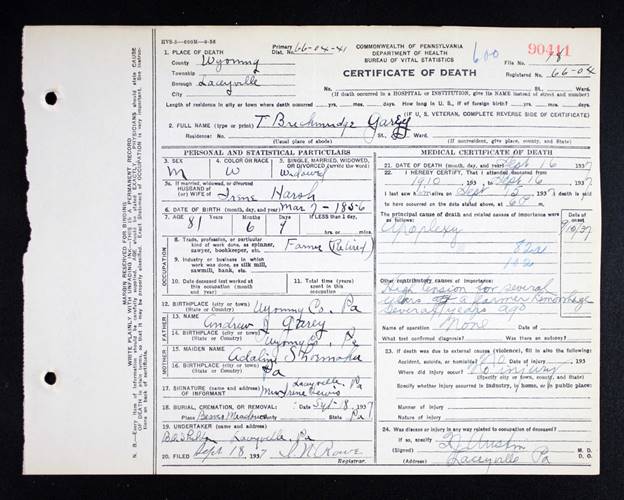 HVS-5—600M—6-36
Primary
Dist. No. 66-04-41
COMMONWEALTH OF PENNSYLVANIA
DEPARTMENT OF HEALTH
BUREAU OF VITAL STATISTICS
CERTIFICATE OF DEATH
600
90411
File No. 78
Registered No. 66-04
1. PLACE OF DEATH
County Wyoming
Township
Borough Laceyville
No. St. Ward.
(If death occurred in a HOSPITAL or INSTITUTION, give its NAME instead of street and number)
Length of residence in city or town where death occurred yrs. mos. days. How long in U. S., if of foreign birth? yrs. mos. days.
(IF U. S. VETERAN, COMPLETE REVERSE SIDE OF CERTIFICATE)
2. FULL NAME (type or print) T. Breckinridge Garey
Residence: No. St. Ward.
(Usual place of abode) (If nonresident, give place, county, and State)
PERSONAL AND STATISTICAL PARTICULARS
3. SEX
M
4. COLOR OR RACE
W
5. SINGLE, MARRIED, WIDOWED, OR DIVORCED (write the word)
Widowed
5a. If married, widowed, or divorced
HUSBAND of
(or) WIFE of Irene Harsh
6. DATE OF BIRTH (month, day, and year) Mar 7 - 1856
7. AGE Years Months Days If LESS than 1 day,
81 6 9 hrs. or mins.
OCCUPATION
8. Trade, profession, or particular kind of work done, as spinner, sawyer, bookkeeper, etc. Farmer (Retired)
9. Industry or business in which work was done, as silk mill, sawmill, bank, etc.
10. Date deceased last worked at this occupation (month and year)
11. Total time (years) spent in this occupation
12. BIRTHPLACE (city or town) Wyoming Co. Pa
(State or Country)
FATHER
13. NAME Andrew J Garey
14. BIRTHPLACE (city or town) Wyoming Co. Pa
(State or Country)
MOTHER
15. MAIDEN NAME Adaline
16. BIRTHPLACE (city or town) Pa
(State or Country)
17. SIGNATURE OF INFORMANT Mrs Irene Lewis
(Address) Laceyville, Pa
18. BURIAL, CREMATION, OR REMOVAL: Date Sept 18, 1937
Place County State Pa
19. UNDERTAKER (name and address)
Laceyville Pa
20. FILED Sept 18, 1937 N Rowe
Registrar.
MEDICAL CERTIFICATE OF DEATH
21. DATE OF DEATH (month, day, and year) Sept 16 1937
22. I HEREBY CERTIFY, That I attended deceased from
1910, 193 , to Sept 16, 1937
I last saw h alive on Sept 15, 1937 death is said
to have occurred on the date stated above, at 6 m.
The principal cause of death and related causes of importance were as follows:
Date of onset
Apoplexy 9/10/37
82a
Other contributory causes of importance:
High tension for several
years & a former Hemorrhage
Several years ago
Name of operation None
What test confirmed diagnosis? Was there an autopsy?
23. If death was due to external causes (violence), fill in also the following:
Accident, suicide, or homicide? No Date of injury , 193
Where did injury occur? No injury
(Specify city or town, county, and State)
Specify whether injury occurred in industry, in home, or in public place
Manner of injury
Nature of injury
24. Was disease or injury in any way related to occupation of deceased?
If so, specify
(Signed) Austin M. D.
(Address) Laceyville Pa
MARGIN RESERVED FOR BINDING
WRITE PLAINLY WITH UNFADING INK—THIS IS A PERMANENT RECORD